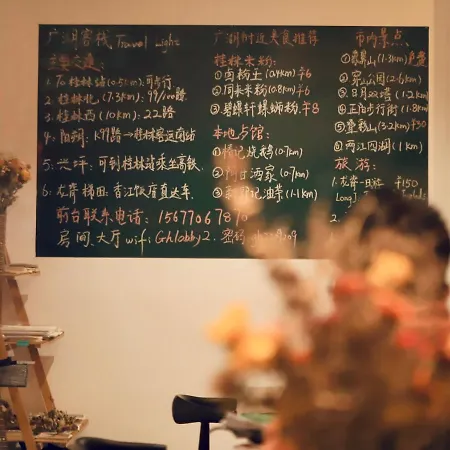 广湖客栈 Travel Light
主要交通:
1. To 桂林站 (0.5km):可步行
2. 桂林北 (7.3km): 99/100路
3. 桂林西 (10km): 22路
4. 阳朔: K99路→桂林客运南站
5. 兴坪: 可到桂林站乘坐高铁
6. 龙脊梯田: 香江饭店直达车
前台联系电话: 1567706787
房间、大厅 wifi: Ghlobby2. 密码
广湖附近美食推荐
桂林米粉:
①卤粉王 (0.4km) ¥6
②同来米粉 (0.8km) ¥6
③碧螺轩螺蛳粉 ¥8
本地点馆:
①椿记烧鹅 (0.7km)
②阿甘酒家 (0.7km)
③记油茶 (1.1km)
市内景点
①象鼻山 (1.3km) 免费
②穿山公园 (2.6km)
③日月双塔 (1.2km)
④正阳步行街 (1.8km)
⑤叠彩山 (3.2km) ¥30
⑥两江四湖 (1km)
旅游:
1. 龙脊一日游 ¥150